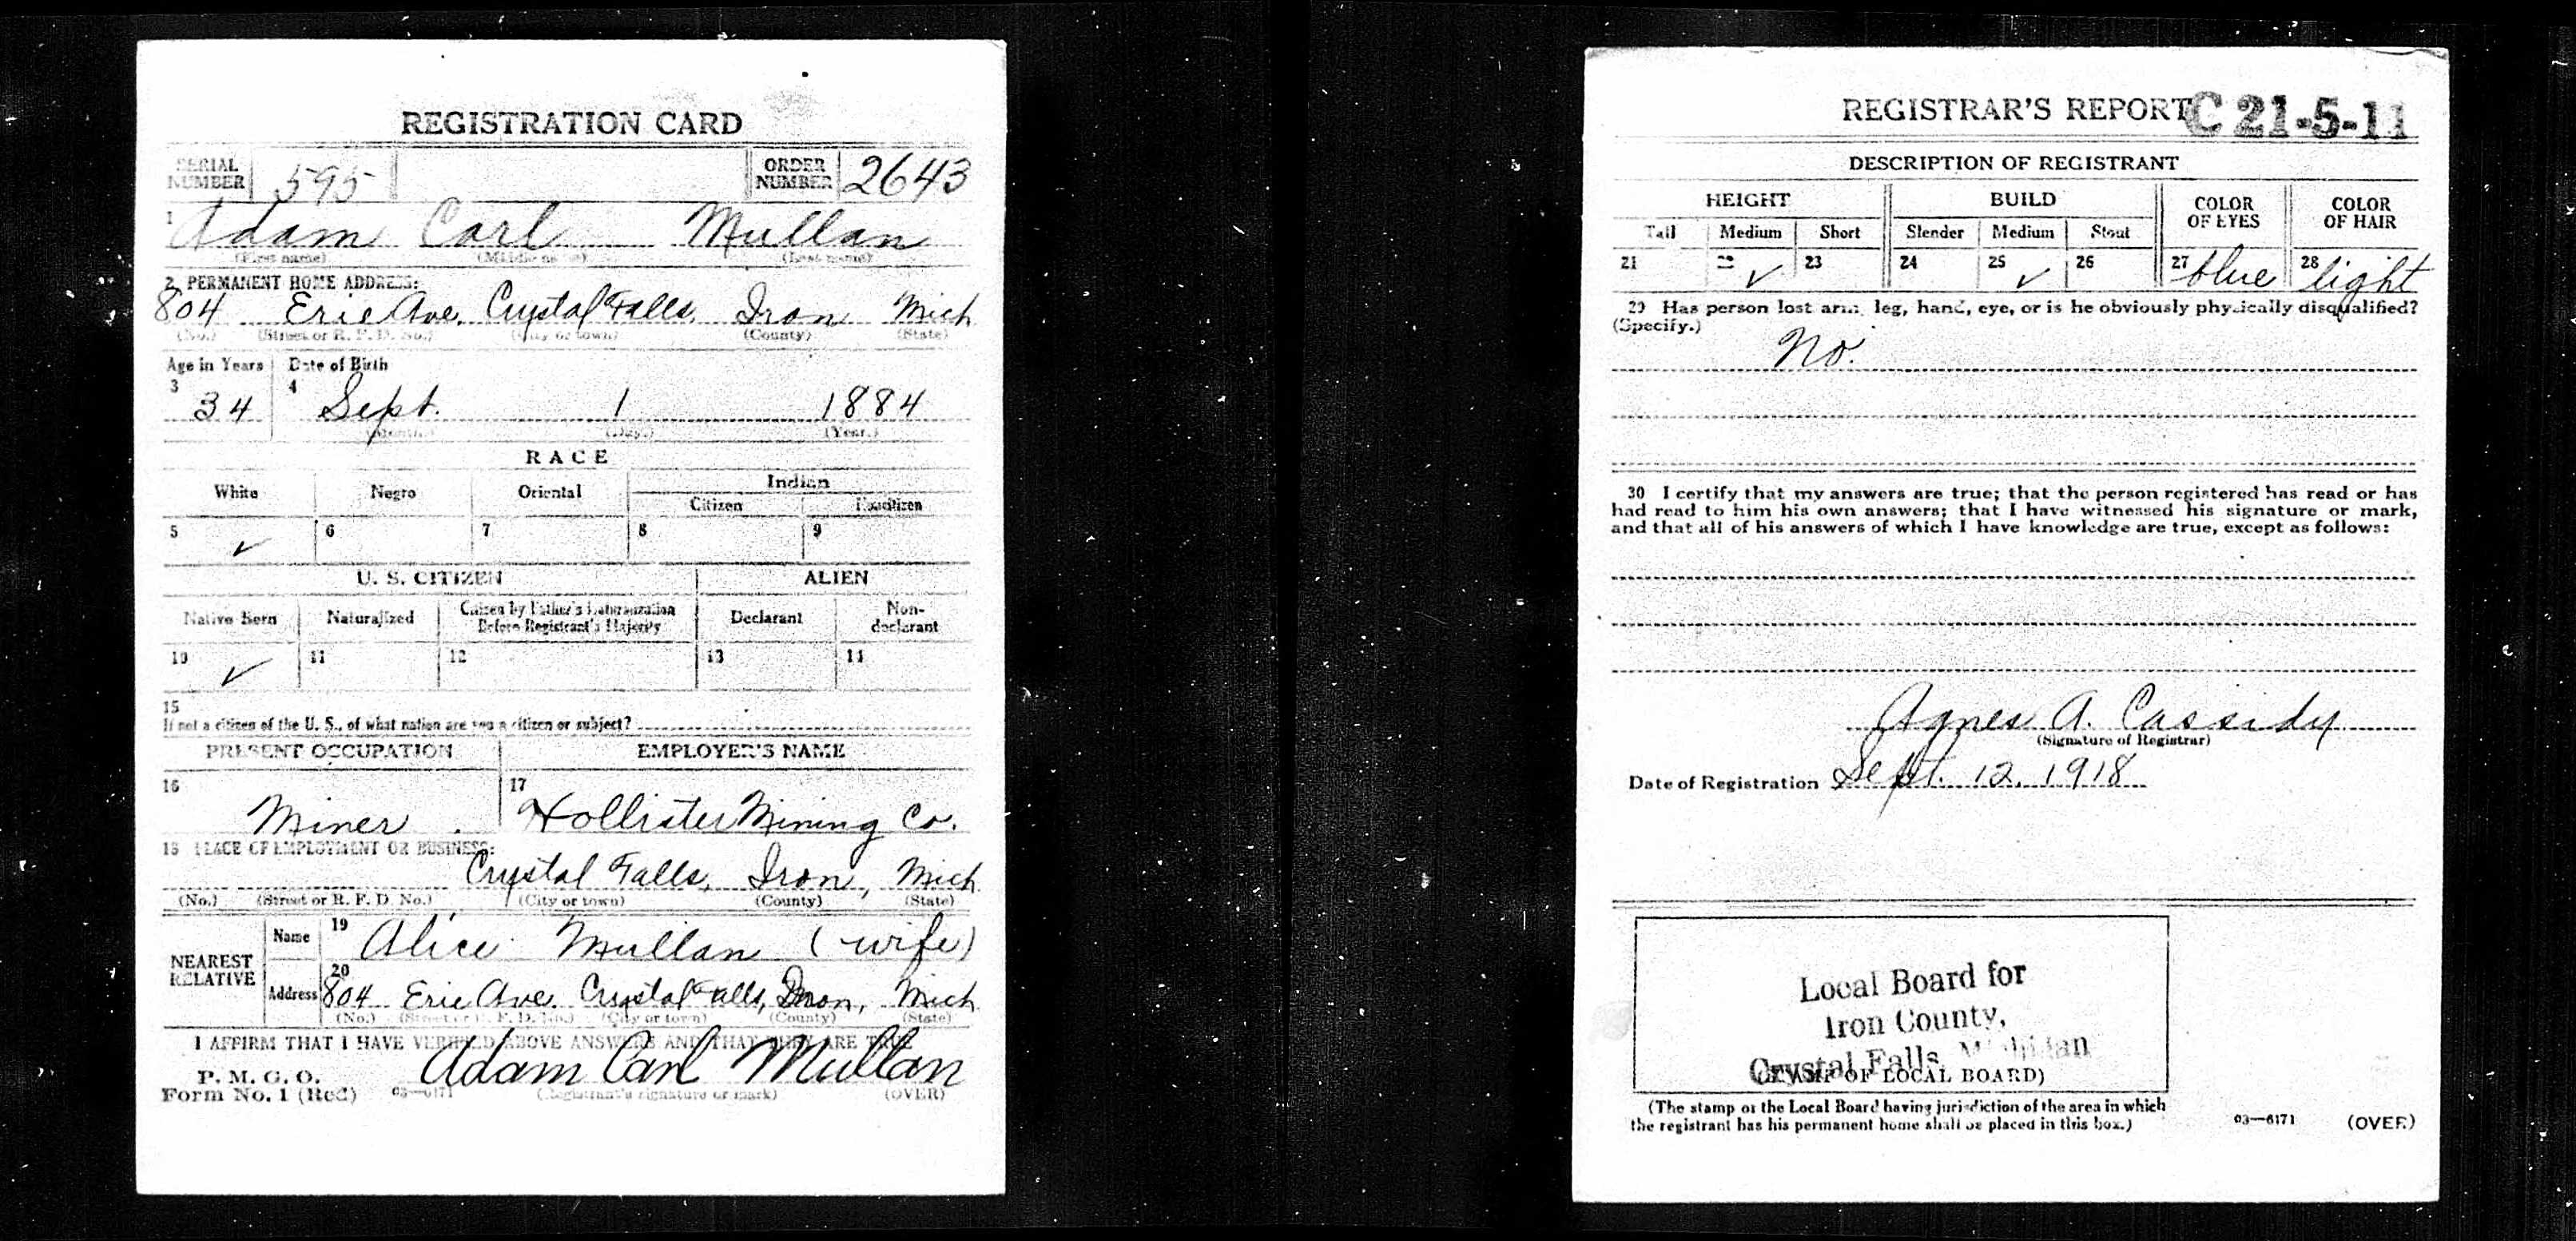 REGISTRATION CARD
SERIAL NUMBER 595 ORDER NUMBER 2643
1 Adam Carl Mullan
(First name) (Middle name) (Last name)
2 PERMANENT HOME ADDRESS:
804 Erie Ave. Crystal Falls, Iron Mich
(No.) (Street or R. F. D. No.) (City or town) (County) (State)
Age in Years Date of Birth
3 4
34 Sept. 1 1884
(Month.) (Day.) (Year.)
RACE
White Negro Oriental Indian
Citizen Noncitizen
5 ✓ 6 7 8 9
U. S. CITIZEN ALIEN
Native Born Naturalized Citizen by Father's Naturalization Before Registrant's Majority Declarant Non-declarant
10 ✓ 11 12 13 14
15
If not a citizen of the U. S., of what nation are you a citizen or subject?
PRESENT OCCUPATION EMPLOYER'S NAME
16 17
Miner. Hollister Mining Co.
18 PLACE OF EMPLOYMENT OR BUSINESS:
Crystal Falls, Iron, Mich
(No.) (Street or R. F. D. No.) (City or town) (County) (State)
NEAREST RELATIVE
Name 19 Alice Mullan (wife)
Address 20 804 Erie Ave. Crystal Falls, Iron, Mich
(No.) (Street or R. F. D. No.) (City or town) (County) (State)
I AFFIRM THAT I HAVE VERIFIED ABOVE ANSWERS AND THAT THEY ARE TRUE
P. M. G. O.
Form No. 1 (Red) 03—6171 Adam Carl Mullan
(Registrant's signature or mark) (OVER)
REGISTRAR'S REPORT C 21-5-11
DESCRIPTION OF REGISTRANT
HEIGHT BUILD COLOR OF EYES COLOR OF HAIR
Tall Medium Short Slender Medium Stout
21 22 ✓ 23 24 25 ✓ 26 27 blue 28 light
29 Has person lost arm, leg, hand, eye, or is he obviously physically disqualified?
(Specify.) No.
30 I certify that my answers are true; that the person registered has read or has
had read to him his own answers; that I have witnessed his signature or mark,
and that all of his answers of which I have knowledge are true, except as follows:
Agnes A. Cassidy
(Signature of Registrar)
Date of Registration Sept. 12, 1918
Local Board for
Iron County,
Crystal Falls, Michigan
(STAMP OF LOCAL BOARD)
(The stamp of the Local Board having jurisdiction of the area in which
the registrant has his permanent home shall be placed in this box.)
03—6171 (OVER)